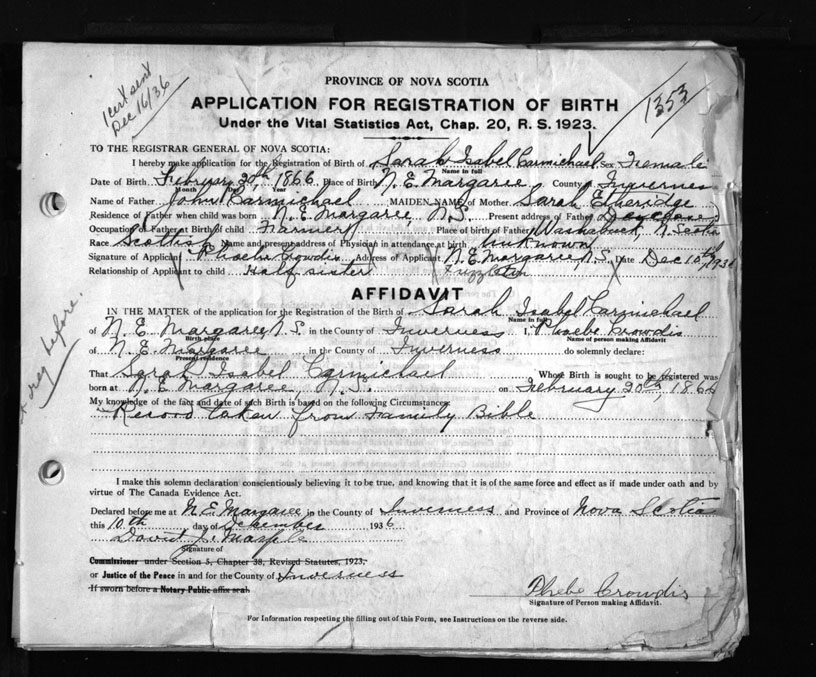 1 cert sent
Dec 16/36
1353
PROVINCE OF NOVA SCOTIA
APPLICATION FOR REGISTRATION OF BIRTH
Under the Vital Statistics Act, Chap. 20, R. S. 1923.
TO THE REGISTRAR GENERAL OF NOVA SCOTIA:
I hereby make application for the Registration of Birth of Sarah Isabel Carmichael Sex Female
Name in full
Date of Birth February 20th 1866 Place of Birth N. E. Margaree County Inverness
Month Day Year
Name of Father John Carmichael MAIDEN NAME of Mother Sarah Etheridge
Residence of Father when child was born N. E. Margaree, N.S. Present address of Father Deceased
Occupation of Father at Birth of child Farmer Place of birth of Father Washabuck, N. Scotia
Race Scottish Name and present address of Physician in attendance at birth Unknown
Signature of Applicant Phoebe Crowdis Address of Applicant N. E. Margaree, N.S. Date Dec 10th 1936
Relationship of Applicant to child Half sister
AFFIDAVIT
IN THE MATTER of the application for the Registration of the Birth of Sarah Isabel Carmichael
Name in full
of N. E. Margaree, N.S. in the County of Inverness I, Phoebe Crowdis
Birth place Name of person making Affidavit
of N. E. Margaree in the County of Inverness do solemnly declare:
Present residence
That Sarah Isabel Carmichael Whose Birth is sought to be registered was
born at N. E. Margaree, N.S. on February 20th 1866
My knowledge of the fact and date of such Birth is based on the following Circumstances:
Record taken from Family Bible
reg before.
I make this solemn declaration conscientiously believing it to be true, and knowing that it is of the same force and effect as if made under oath and by
virtue of The Canada Evidence Act.
Declared before me at N. E. Margaree in the County of Inverness and Province of Nova Scotia
this 10th day of December 1936
David J.
Signature of
Commissioner under Section 5, Chapter 38, Revised Statutes, 1923.
or Justice of the Peace in and for the County of Inverness
If sworn before a Notary Public affix seal
Phebe Crowdis
Signature of Person making Affidavit.
For Information respecting the filling out of this Form, see Instructions on the reverse side.